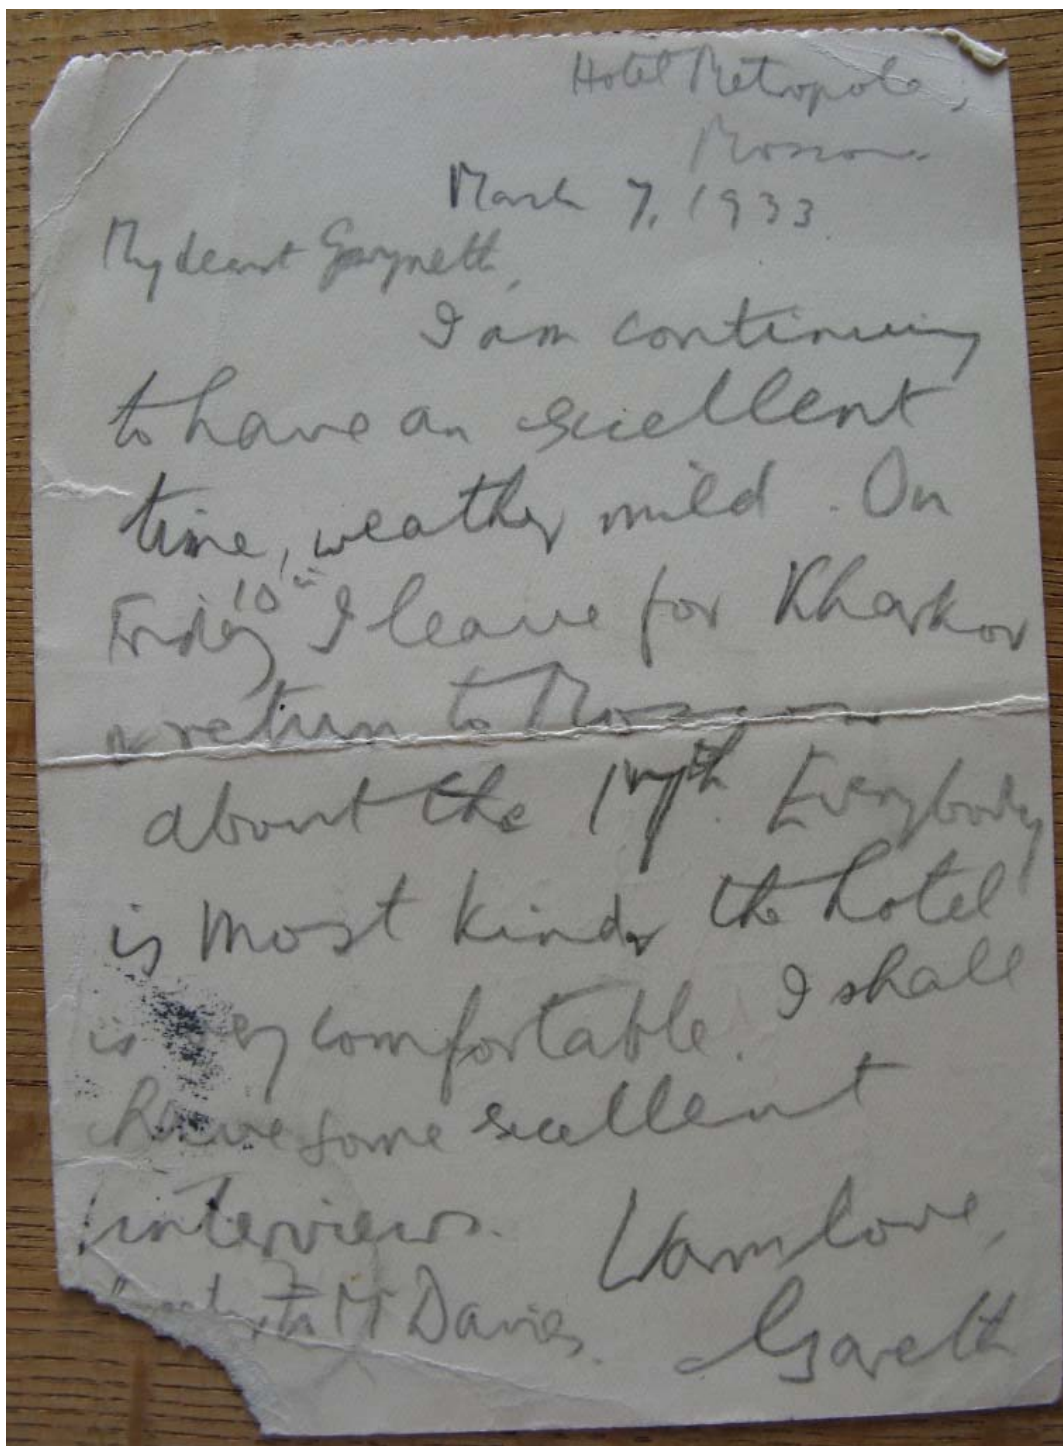 Hotel Metropole,
Moscow.
March 7, 1933.
My dearest Gwyneth,
I am continuing
to have an excellent
time, weather mild. On
Friday 10th I leave for Kharkov
& return to Moscow
about the 17th. Everybody
is most kind & the hotel
is very comfortable. I shall
have some excellent
interviews. Warm love,
to Mr Davies. Gareth